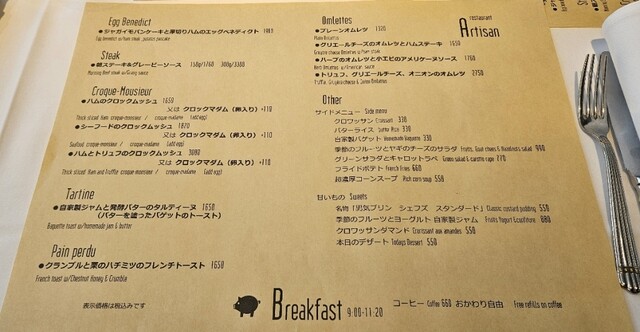 restaurant
Artisan
Egg Benedict
●ジャガイモパンケーキと厚切りハムのエッグベネディクト 1983
Egg benedict w/Ham steak, potato pancake
Steak
●朝ステーキ&グレービーソース 150g/1760 300g/3300
Morning Beef steak w/Gravy sauce
Croque-Mousieur
●ハムのクロックムッシュ 1650
又は クロックマダム (卵入り) +110
Thick sliced Ham croque-monsieur / croque-madame (add egg)
●シーフードのクロックムッシュ 1870
又は クロックマダム (卵入り) +110
Seafood croque-monsieur / croque-madame (add egg)
●ハムとトリュフのクロックムッシュ
又は クロックマダム (卵入り) +110
Thick sliced Ham and Truffle croque-monsieur / croque-madame (add egg)
Tartine
●自家製ジャムと発酵バターのタルティーヌ 1650
(バターを塗ったバゲットのトースト)
Baguette toast w/homemade jam & butter
Pain perdu
●クランブルと栗のハチミツのフレンチトースト 1650
French toast w/Chestnut Honey & Crumble
表示価格は税込みです
Omlettes
●プレーンオムレツ 1320
Plain Omlettes
●グリエールチーズのオムレツとハムステーキ 1650
Gruyere cheese Omlettes w/Ham steak
●ハーブのオムレツと小エビのアメリケーヌソース 1760
Herb Omlettes w/American sauce
●トリュフ、グリエールチーズ、オニオンのオムレツ 2750
Truffle, Gruyere cheese & Onion Omlettes
Other
サイドメニュー Side menu
クロワッサン Croissant 330
バターライス Butter Rice 330
自家製バゲット Homemade Baguette 330
季節のフルーツとヤギのチーズのサラダ Fruits, Goat chees & Hazelnuts salad 990
グリーンサラダとキャロットラペ Green salad & carotte rape 770
フライドポテト French fries 660
超濃厚コーンスープ Rich corn soup 550
甘いもの Sweets
名物「男気プリン シェフズ スタンダード」 Classic custard pudding 550
季節のフルーツとヨーグルト 自家製ジャム Fruits Yogurt &confiture 880
クロワッサンダマンド Croissant aux amandes 550
本日のデザート Todays Dessert 550
Breakfast 9:00-11:20
コーヒー Coffee 660 おかわり自由 Free refills on coffee